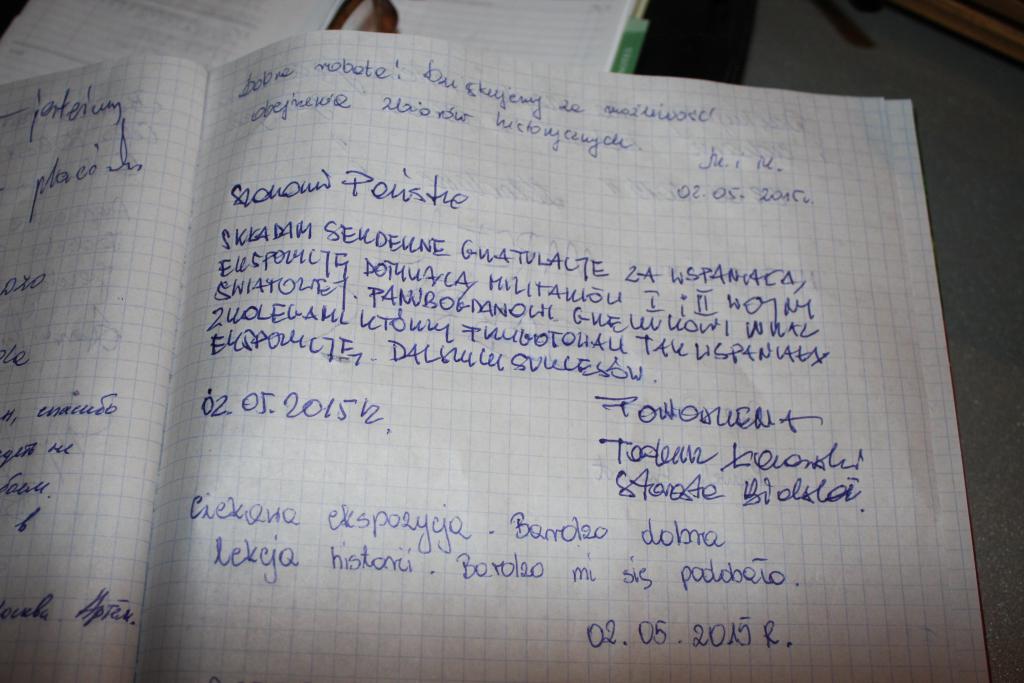 – jesteśmy
placówki
Dobra robota! Dziękujemy za możliwość
obejrzenia zbiorów historycznych.
M. i M.
02.05.2015r.
Szanowni Państwo
SKŁADAM SERDECZNE GRATULACJE ZA WSPANIAŁĄ
EKSPOZYCJĘ DOTYCZĄCĄ MILITARIÓW I i II WOJNY
ŚWIATOWEJ. PANU BOGDANOWI
Z KOLEGAMI KTÓRZY PRZYGOTOWALI TAK WSPANIAŁĄ
EKSPOZYCJĘ. DALSZYCH SUKCESÓW.
02.05.2015 r.
Tadeusz
Starosta Bialski.
Ciekawa ekspozycja. Bardzo dobra
lekcja historii. Bardzo mi się podobało.
02.05.2015 R.
спасибо
не
в
Артём.